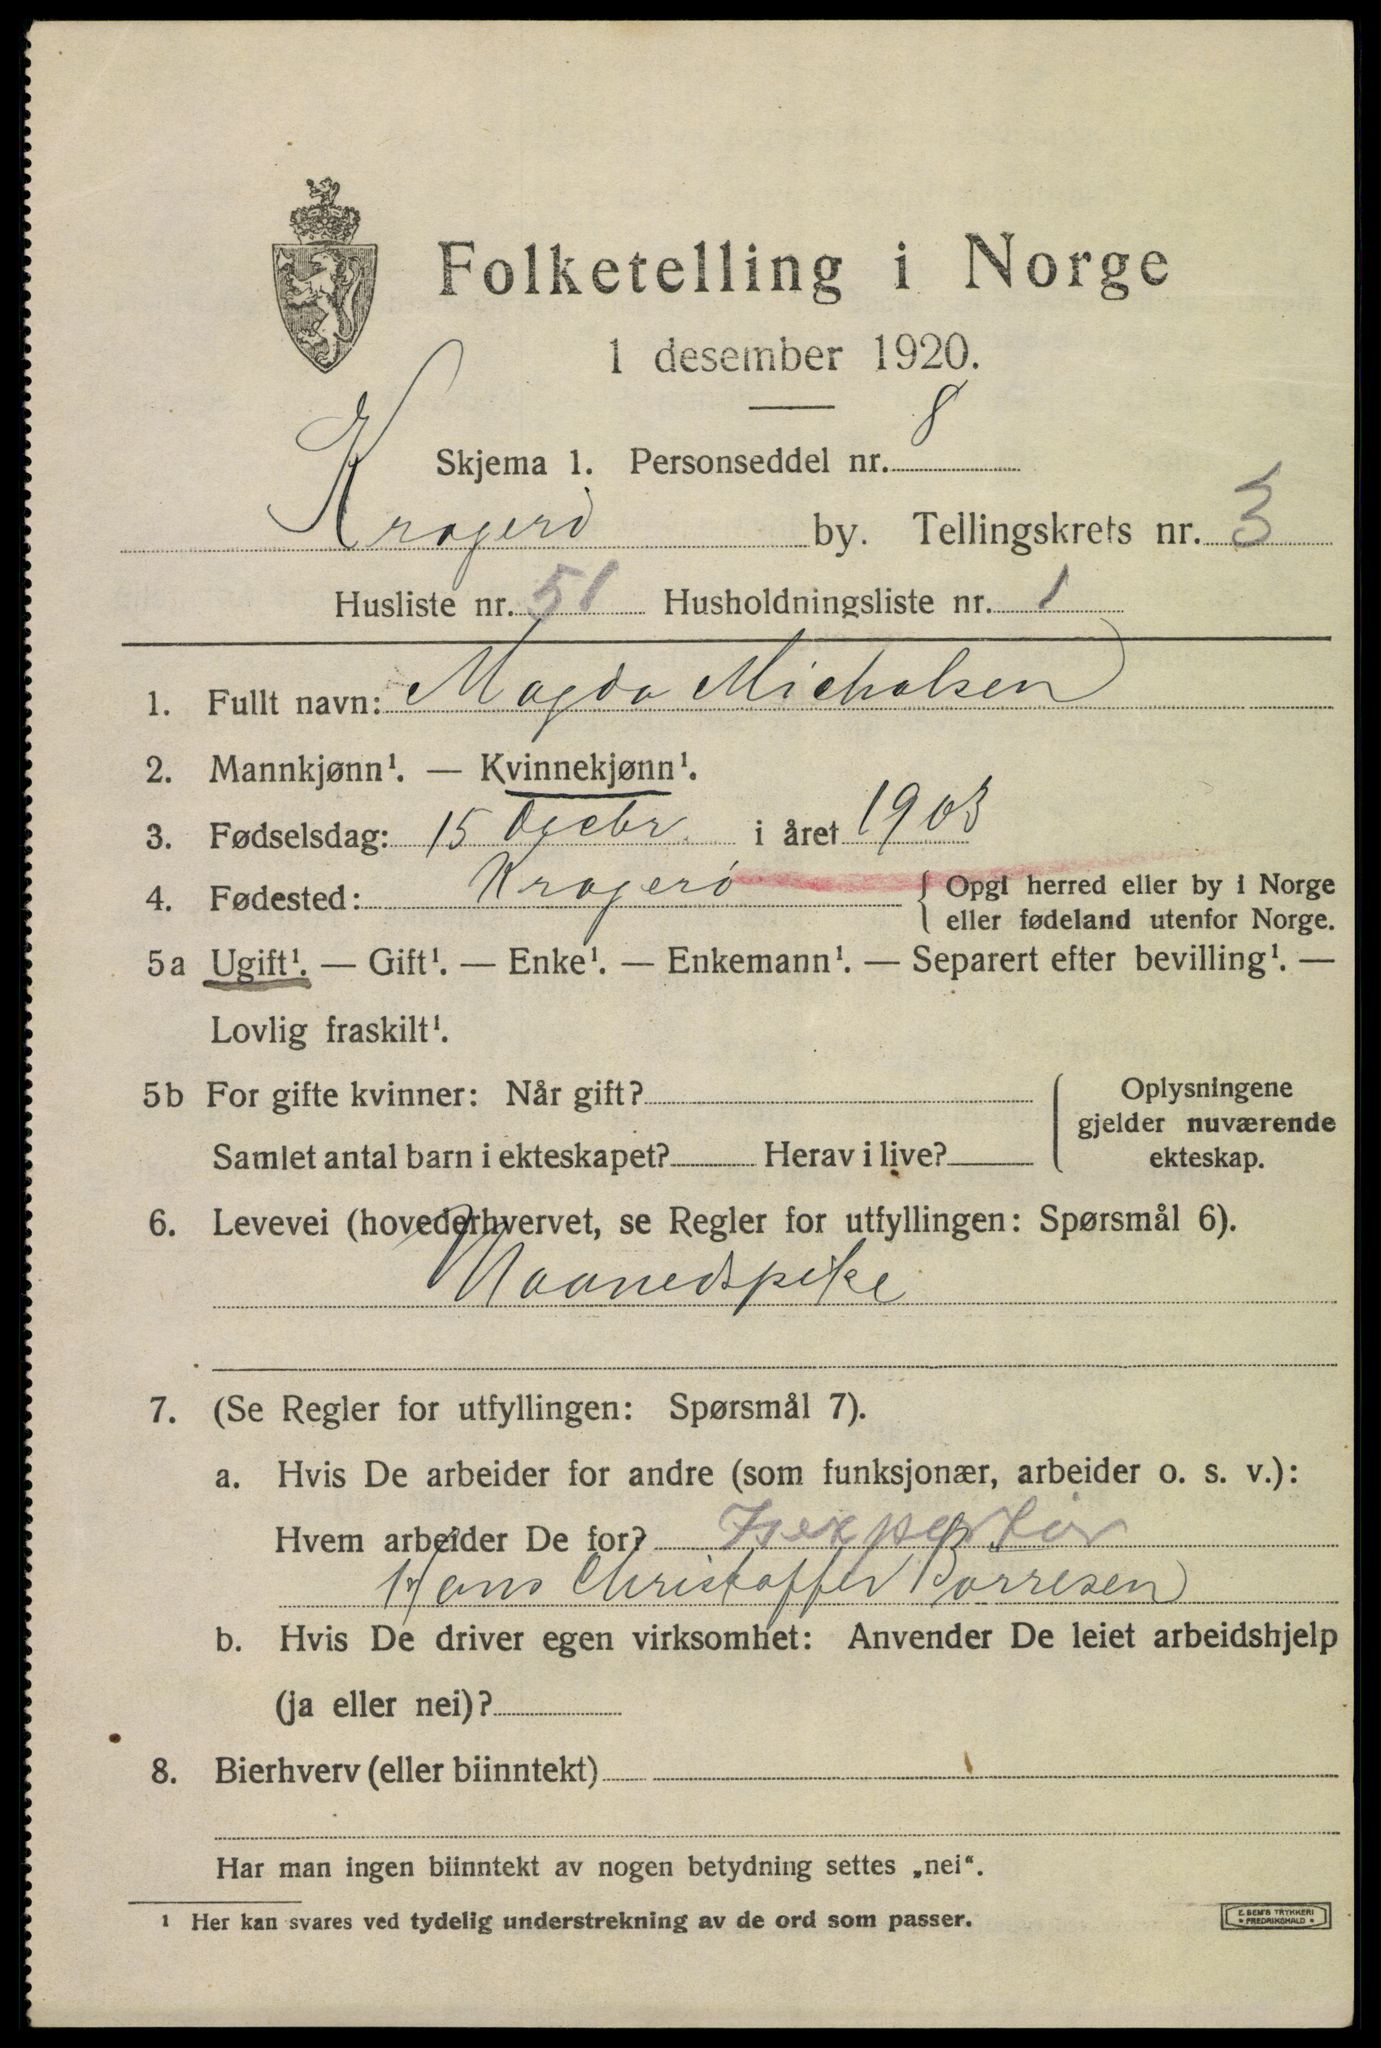 Folketelling i Norge
1 desember 1920.
Skjema 1. Personseddel nr. 8
Kragerö by. Tellingskrets nr. 3
Husliste nr. 51 Husholdningsliste nr. 1
1. Fullt navn: Magda Michalsen
2. Mannkjønn¹. — Kvinnekjønn¹.
3. Fødselsdag: 15 Decbr. i året 1903
4. Fødested: Kragerö { Opgi herred eller by i Norge
eller fødeland utenfor Norge.
5a Ugift¹. — Gift¹. — Enke¹. — Enkemann¹. — Separert efter bevilling¹. —
Lovlig fraskilt¹.
5b For gifte kvinner: Når gift? { Oplysningene
gjelder nuværende
Samlet antal barn i ekteskapet? Herav i live? ekteskap.
6. Levevei (hovederhvervet, se Regler for utfyllingen: Spørsmål 6).
Maanedspike
7. (Se Regler for utfyllingen: Spørsmål 7).
a. Hvis De arbeider for andre (som funksjonær, arbeider o. s. v.):
Hvem arbeider De for? Isexportör
Hans Christoffer Borresen
b. Hvis De driver egen virksomhet: Anvender De leiet arbeidshjelp
(ja eller nei)?
8. Bierhverv (eller biinntekt)
Har man ingen biinntekt av nogen betydning settes „nei“.
¹ Her kan svares ved tydelig understrekning av de ord som passer.
E. SEM'S TRYKKERI
* FREDRIKSHALD *